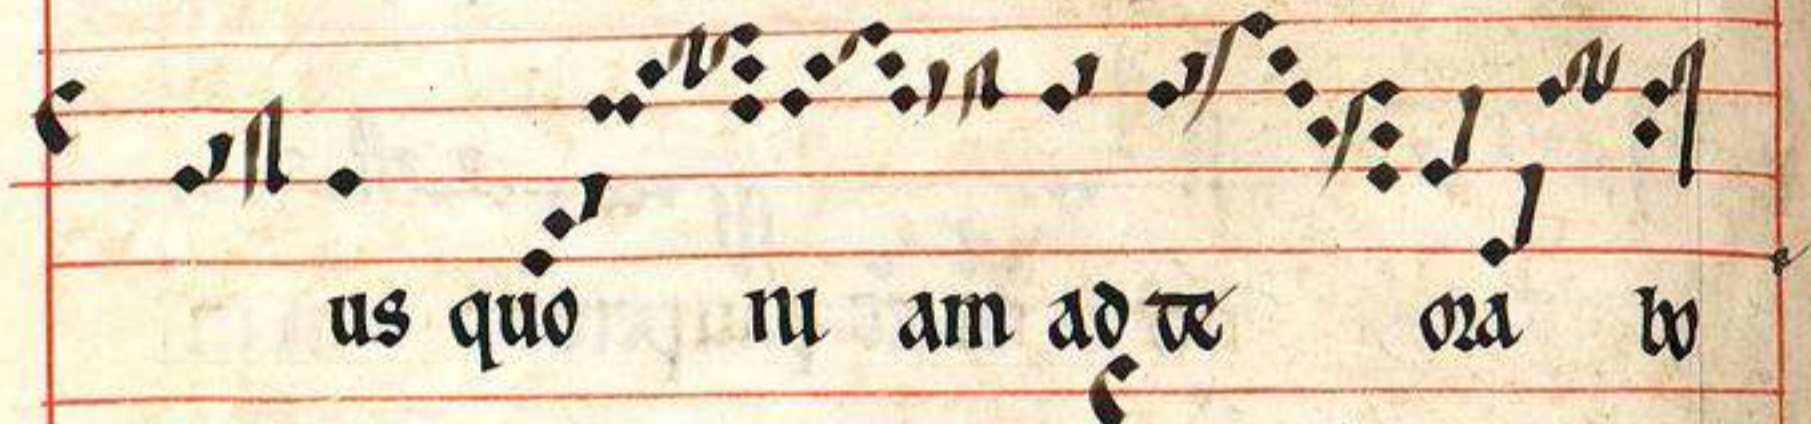 us quo ni am ad te ora bo